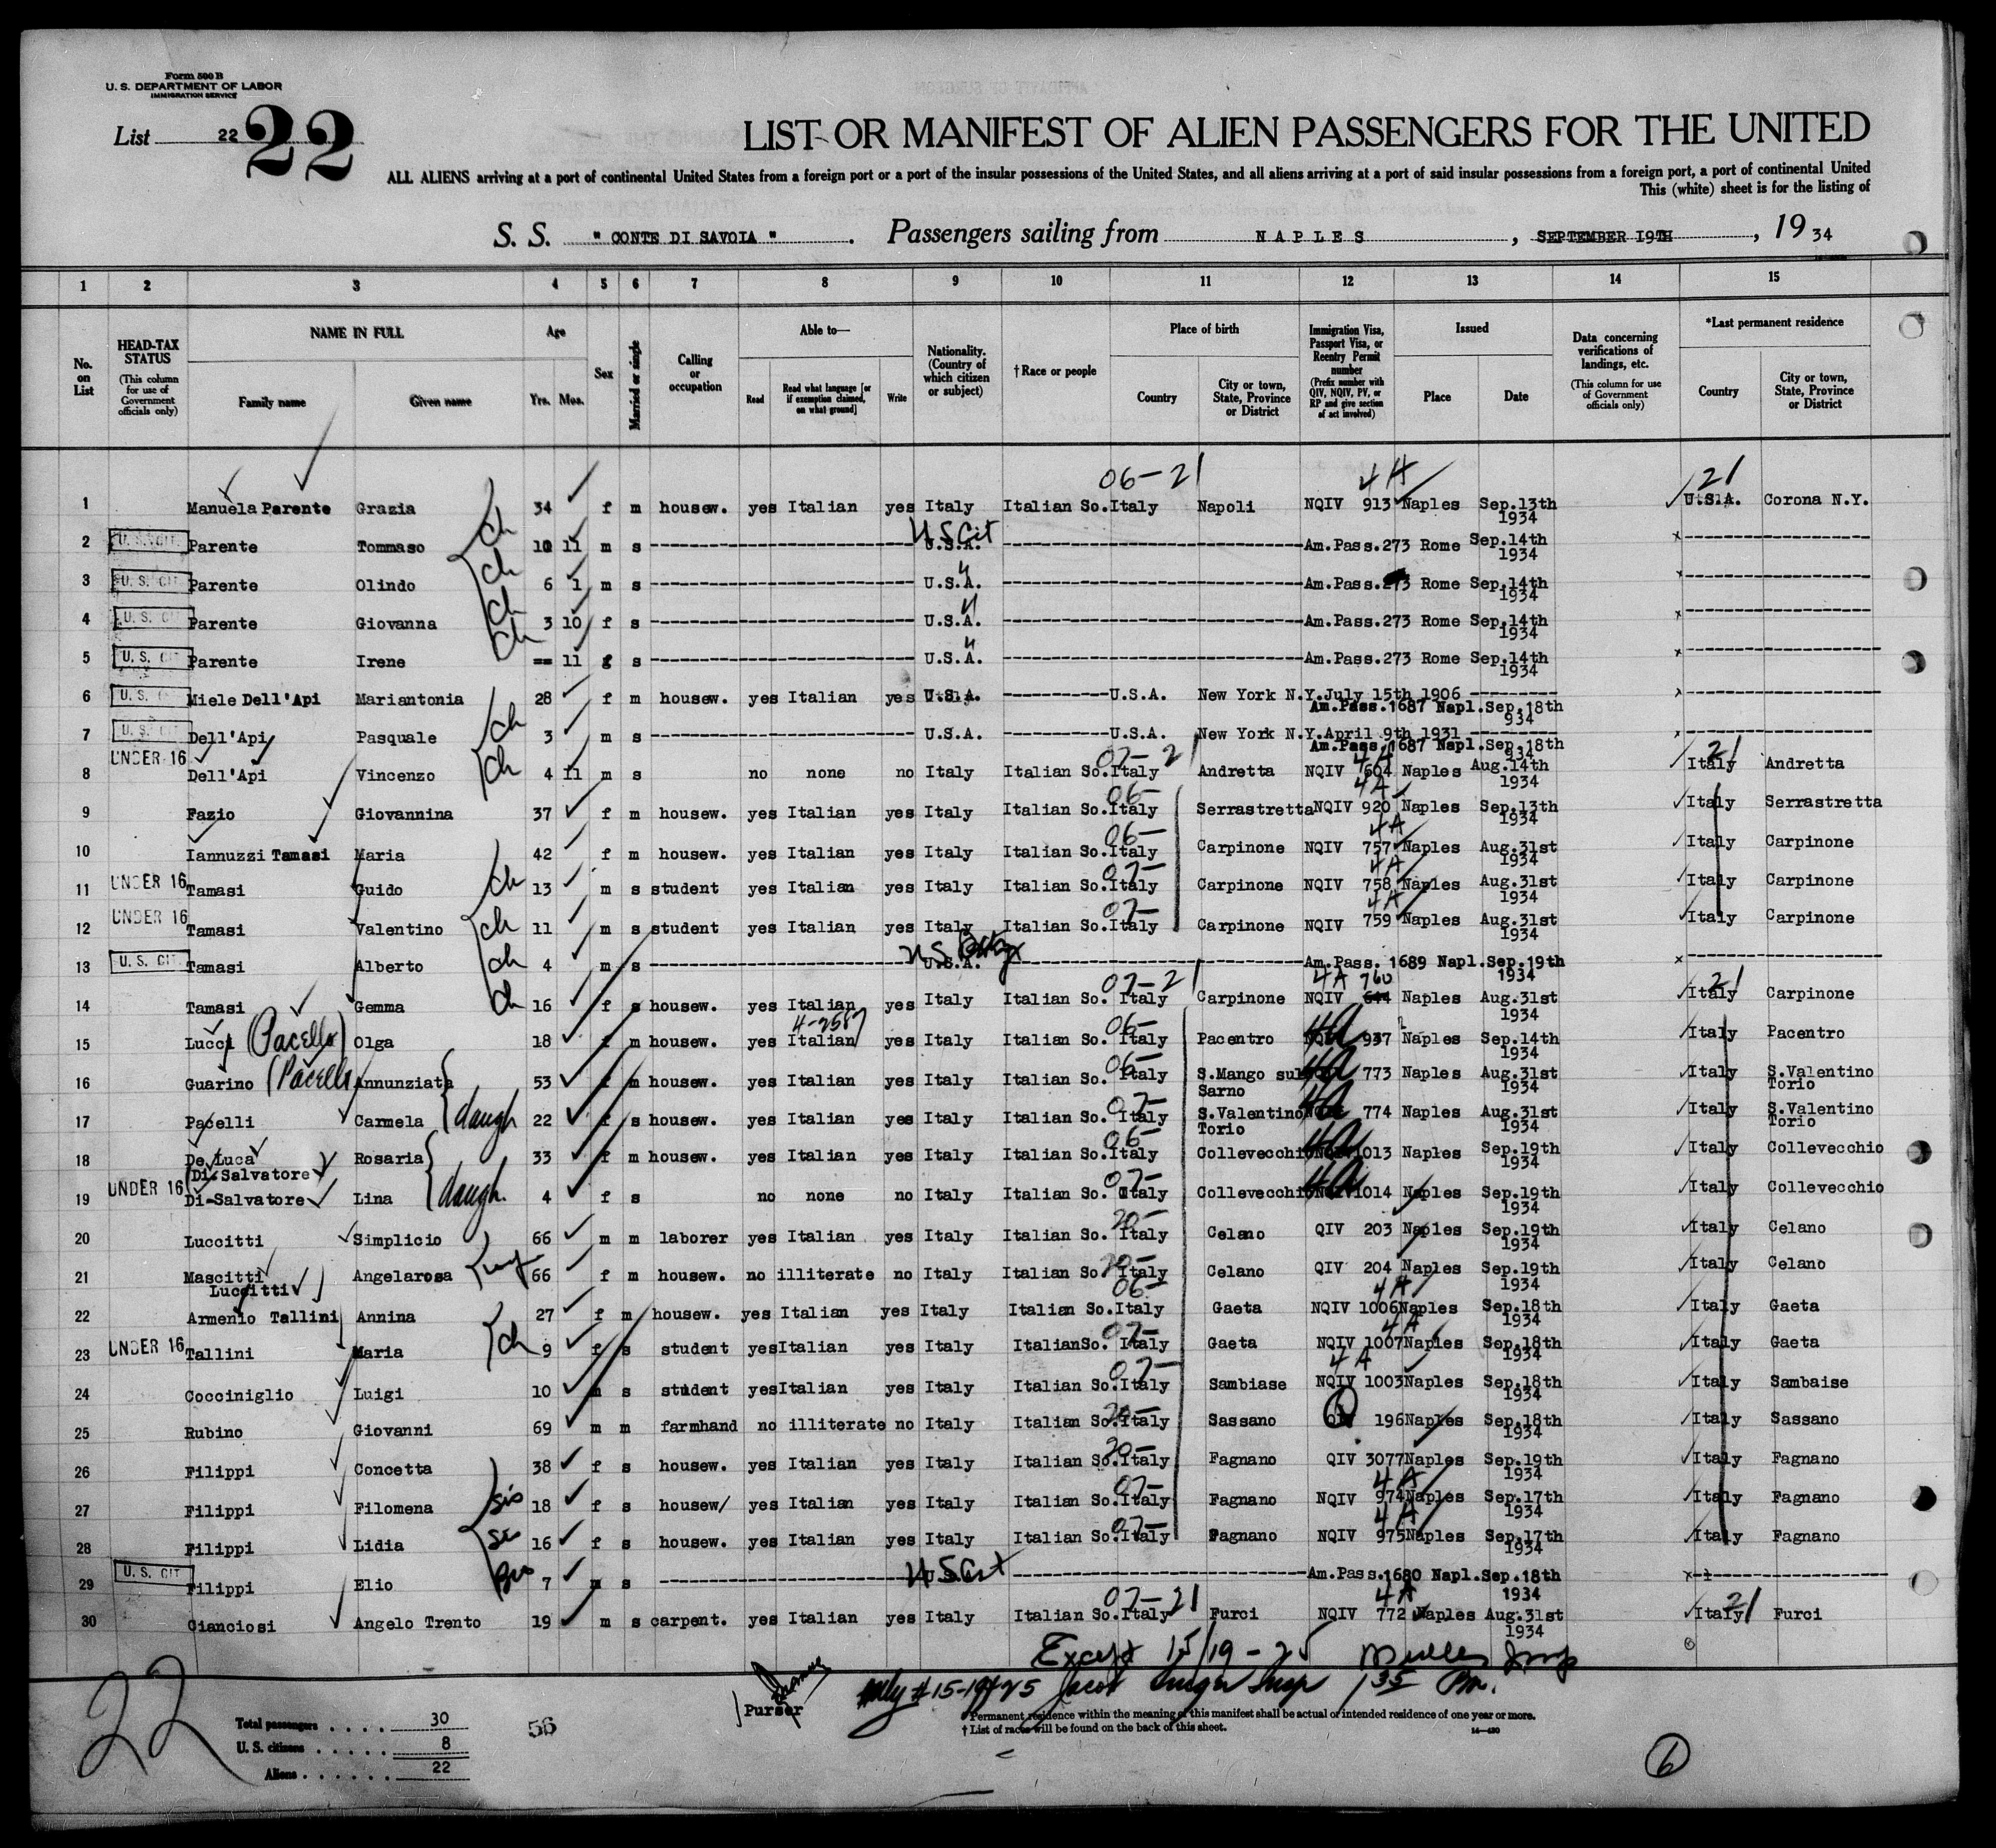 Form 500 B
U. S. DEPARTMENT OF LABOR
IMMIGRATION SERVICE
List 22 22
LIST OR MANIFEST OF ALIEN PASSENGERS FOR THE UNITED
ALL ALIENS arriving at a port of continental United States from a foreign port or a port of the insular possessions of the United States, and all aliens arriving at a port of said insular possessions from a foreign port, a port of continental United
This (white) sheet is for the listing of
S. S. " CONTE DI SAVOIA " . Passengers sailing from NAPLES , SEPTEMBER 19TH , 19 34
1 2 3 4 5 6 7 8 9 10 11 12 13 14 15
No. on List
HEAD-TAX STATUS (This column for use of Government officials only)
NAME IN FULL Family name Given name
Age Yrs. Mos.
Sex
Married or single
Calling or occupation
Able to— Read Read what language [or if exemption claimed, on what ground] Write
Nationality. (Country of which citizen or subject)
†Race or people
Place of birth Country City or town, State, Province or District
Immigration Visa, Passport Visa, or Reentry Permit number (Prefix number with QIV, NQIV, PV, or RP and give section of act involved)
Issued Place Date
Data concerning verifications of landings, etc. (This column for use of Government officials only)
*Last permanent residence Country City or town, State, Province or District
06-21 4A 21
1 Manuela Parente Grazia 34 f m housew. yes Italian yes Italy Italian So. Italy Napoli NQIV 913 Naples Sep.13th 1934 U.S.A. Corona N.Y.
2 U. S. CIT. Parente Tommaso ch 10 11 m s U S Cit U.S.A. Am.Pass.273 Rome Sep.14th 1934
3 U. S. CIT. Parente Olindo ch 6 1 m s U.S.A. Am.Pass.273 Rome Sep.14th 1934
4 U. S. CIT. Parente Giovanna ch 3 10 f s U.S.A. Am.Pass.273 Rome Sep.14th 1934
5 U. S. CIT. Parente Irene ch -- 11 f s U.S.A. Am.Pass.273 Rome Sep.14th 1934
6 U. S. CIT. Miele Dell'Api Mariantonia 28 f m housew. yes Italian yes U.S.A. U.S.A. New York N.Y. July 15th 1906 Am.Pass.1687 Napl.Sep.18th 934
7 U. S. CIT. Dell'Api Pasquale ch 3 m s U.S.A. U.S.A. New York N.Y. April 9th 1931 Am.Pass.1687 Napl.Sep.18th 934
8 UNDER 16 Dell'Api Vincenzo ch 4 11 m s no none no Italy Italian So. 07-21 Italy Andretta NQIV 4A 604 Naples Aug.14th 1934 21 Italy Andretta
9 Fazio Giovannina 37 f m housew. yes Italian yes Italy Italian So. 06- Italy Serrastretta NQIV 4A 920 Naples Sep.13th 1934 Italy Serrastretta
10 Iannuzzi Tamasi Maria 42 f m housew. yes Italian yes Italy Italian So. 06- Italy Carpinone NQIV 4A 757 Naples Aug.31st 1934 Italy Carpinone
11 UNDER 16 Tamasi Guido ch 13 m s student yes Italian yes Italy Italian So. 07- Italy Carpinone NQIV 4A 758 Naples Aug.31st 1934 Italy Carpinone
12 UNDER 16 Tamasi Valentino ch 11 m s student yes Italian yes Italy Italian So. 07- Italy Carpinone NQIV 4A 759 Naples Aug.31st 1934 Italy Carpinone
13 U. S. CIT. Tamasi Alberto ch 4 m s U.S.A. Am.Pass. 1689 Napl.Sep.19th 1934
14 Tamasi Gemma ch 16 f s housew. yes Italian yes Italy Italian So. 07-21 Italy Carpinone 4A 760 NQIV Naples Aug.31st 1934 21 Italy Carpinone
15 Lucci (Pacello) Olga 18 f m housew. yes Italian yes Italy Italian So. 06- Italy Pacentro 4A 937 Naples Sep.14th 1934 Italy Pacentro
16 Guarino (Pacelli Annunziata 53 f m housew. yes Italian yes Italy Italian So. 06- Italy S.Mango sul Sarno 4A 773 Naples Aug.31st 1934 Italy S.Valentino Torio
17 Pacelli Carmela daugh 22 f s housew. yes Italian yes Italy Italian So. 07- Italy S.Valentino Torio 4A 774 Naples Aug.31st 1934 Italy S.Valentino Torio
18 De Luca (Di Salvatore) Rosaria 33 f m housew. yes Italian yes Italy Italian So. 06- Italy Collevecchio 4A NQIV 1013 Naples Sep.19th 1934 Italy Collevecchio
19 UNDER 16 Di-Salvatore Lina daugh. 4 f s no none no Italy Italian So. 07- Italy Collevecchio 4A NQIV 1014 Naples Sep.19th 1934 Italy Collevecchio
20 Luccitti Simplicio 66 m m laborer yes Italian yes Italy Italian So. 20- Italy Celano QIV 203 Naples Sep.19th 1934 Italy Celano
21 Mascitti Luccitti Angelarosa 66 f m housew. no illiterate no Italy Italian So. 20- Italy Celano QIV 204 Naples Sep.19th 1934 Italy Celano
22 Armenio Tallini Annina 27 f m housew. yes Italian yes Italy Italian So. 06- Italy Gaeta NQIV 4A 1006 Naples Sep.18th 1934 Italy Gaeta
23 UNDER 16 Tallini Maria ch 9 f s student yes Italian yes Italy Italian So. 07- Italy Gaeta NQIV 4A 1007 Naples Sep.18th 1934 Italy Gaeta
24 Cocciniglio Luigi 10 m s student yes Italian yes Italy Italian So. 07- Italy Sambiase 4A NQIV 1003 Naples Sep.18th 1934 Italy Sambaise
25 Rubino Giovanni 69 m m farmhand no illiterate no Italy Italian So. 20- Italy Sassano QIV 196 Naples Sep.18th 1934 Italy Sassano
26 Filippi Concetta 38 f s housew. yes Italian yes Italy Italian So. 20- Italy Fagnano QIV 3077 Naples Sep.19th 1934 Italy Fagnano
27 Filippi Filomena sis 18 f s housew/ yes Italian yes Italy Italian So. 07- Italy Fagnano NQIV 4A 974 Naples Sep.17th 1934 Italy Fagnano
28 Filippi Lidia 16 f s housew. yes Italian yes Italy Italian So. 07- Italy Fagnano NQIV 4A 975 Naples Sep.17th 1934 Italy Fagnano
29 U. S. CIT. Filippi Elio bro 7 m s U S Cit Am.Pass.1680 Napl.Sep.18th 1934
30 Cianciosi Angelo Trento 19 m s carpent. yes Italian yes Italy Italian So. 07-21 Italy Furci NQIV 4A 772 Naples Aug.31st 1934 Italy 21 Furci
Except 15/19-25
Purser #15-19+25 Jacob Insp 1 35 Pm.
*Permanent residence within the meaning of this manifest shall be actual or intended residence of one year or more.
† List of races will be found on the back of this sheet.
14—430
22
Total passengers . . . . 30
U. S. citizens . . . . . 8
Aliens . . . . . . 22
56
6